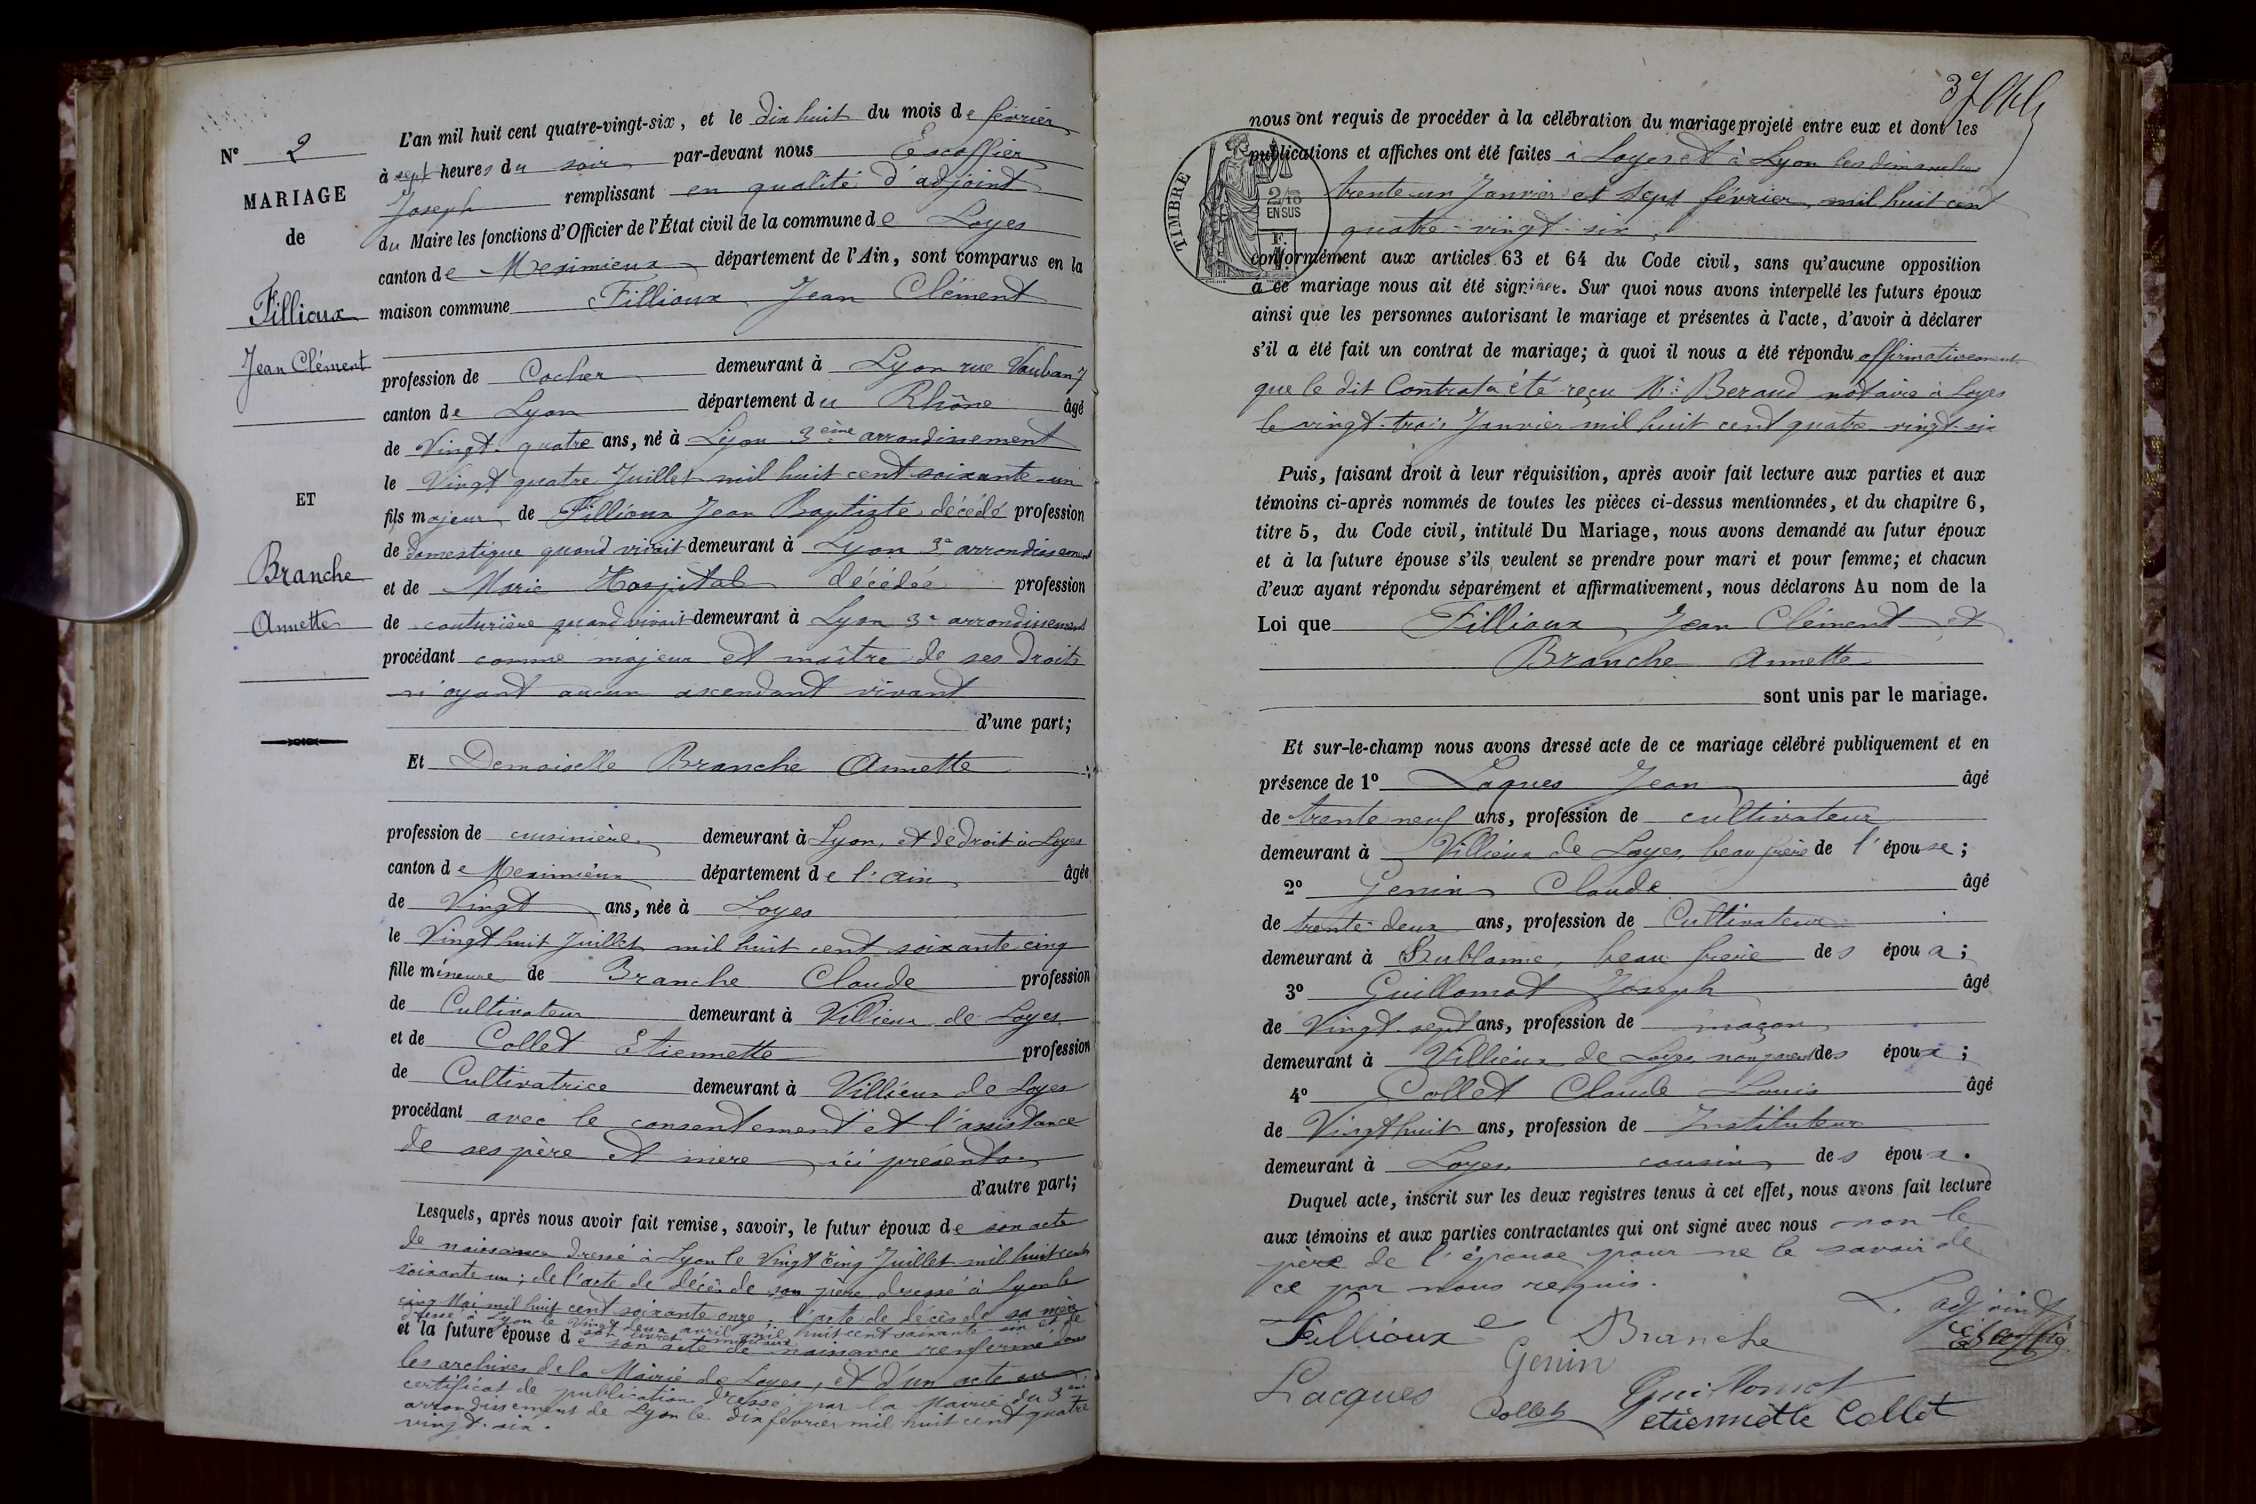 N° 2
MARIAGE
de
Fillioux
Jean Clément
ET
Branche
Annette
L'an mil huit cent quatre-vingt-six, et le dix huit du mois de février
à sept heures du soir par-devant nous Escoffier
Joseph remplissant en qualité d'adjoint
du Maire les fonctions d'Officier de l'État civil de la commune de Loyes
canton de Meximieux département de l'Ain, sont comparus en la
maison commune Fillioux Jean Clément
profession de Cocher demeurant à Lyon rue Vauban 7
canton de Lyon département du Rhône âgé
de Vingt-quatre ans, né à Lyon 3ème arrondissement
le Vingt quatre Juillet mil huit cent soixante-un
fils majeur de Fillioux Jean Baptiste décédé profession
de domestique quand vivait demeurant à Lyon 3e arrondissement
et de Marie Hospital décédée profession
de couturière quand vivait demeurant à Lyon 3e arrondissement
procédant comme majeur et maître de ses droits
n'ayant aucun ascendant vivant
d'une part;
Et Demoiselle Branche Annette
profession de cuisinière demeurant à Lyon, et de droit à Loyes
canton de Meximieux département de l'Ain âgée
de Vingt ans, née à Loyes
le Vingt huit Juillet mil huit cent soixante cinq
fille mineure de Branche Claude profession
de Cultivateur demeurant à Villieu de Loyes
et de Collet Etiennette profession
de Cultivatrice demeurant à Villieux de Loyes
procédant avec le consentement et l'assistance
de ses père et mère ici présents
d'autre part;
Lesquels, après nous avoir fait remise, savoir, le futur époux de son acte
de naissance dressé à Lyon le Vingt cinq Juillet mil huit cent
soixante un; de l'acte de décès de son père dressé à Lyon le
cinq Mai mil huit cent soixante onze, l'acte de décès de sa mère
dressé à Lyon le vingt deux avril mil huit cent soixante six et de
son livret militaire
et la future épouse de son acte de naissance renfermé dans
les archives de la Mairie de Loyes, et d'un acte ou
certificat de publication dressé par la Mairie du 3eme
arrondissement de Lyon le dix février mil huit cent quatre
vingt-six.
37
TIMBRE
2/10
EN SUS
nous ont requis de procéder à la célébration du mariage projeté entre eux et dont les
publications et affiches ont été faites à Loyes et à Lyon les dimanches
trente-un Janvier et Sept février mil huit cent
quatre-vingt-six.
conformément aux articles 63 et 64 du Code civil, sans qu'aucune opposition
à ce mariage nous ait été signifiée. Sur quoi nous avons interpellé les futurs époux
ainsi que les personnes autorisant le mariage et présentes à l'acte, d'avoir à déclarer
s'il a été fait un contrat de mariage; à quoi il nous a été répondu affirmativement
que le dit Contrat a été reçu Me Beraud notaire à Loyes
le vingt-trois Janvier mil huit cent quatre-vingt-six
Puis, faisant droit à leur réquisition, après avoir fait lecture aux parties et aux
témoins ci-après nommés de toutes les pièces ci-dessus mentionnées, et du chapitre 6,
titre 5, du Code civil, intitulé Du Mariage, nous avons demandé au futur époux
et à la future épouse s'ils veulent se prendre pour mari et pour femme; et chacun
d'eux ayant répondu séparément et affirmativement, nous déclarons Au nom de la
Loi que Fillioux Jean Clément et
Branche Annette
sont unis par le mariage.
Et sur-le-champ nous avons dressé acte de ce mariage célébré publiquement et en
présence de 1° Laques Jean âgé
de trente neuf ans, profession de cultivateur
demeurant à Villieux de Loyes, beau frère de l'épouse;
2° Genin Claude âgé
de trente-deux ans, profession de Cultivateur
demeurant à Bublanne, beau frère des époux;
3° Guillomot Joseph âgé
de Vingt sept ans, profession de maçon
demeurant à Villieux de Loyes, non parent des époux;
4° Collet Claude Louis âgé
de Vingt huit ans, profession de Instituteur
demeurant à Loyes, cousin des époux.
Duquel acte, inscrit sur les deux registres tenus à cet effet, nous avons fait lecture
aux témoins et aux parties contractantes qui ont signé avec nous non le
père de l'épouse pour ne le savoir de
ce par nous requis.
L'adjoint
Escoffier
Fillioux
Branche
Genin
Lacques
Guillomot
Collet
etiennette Collet